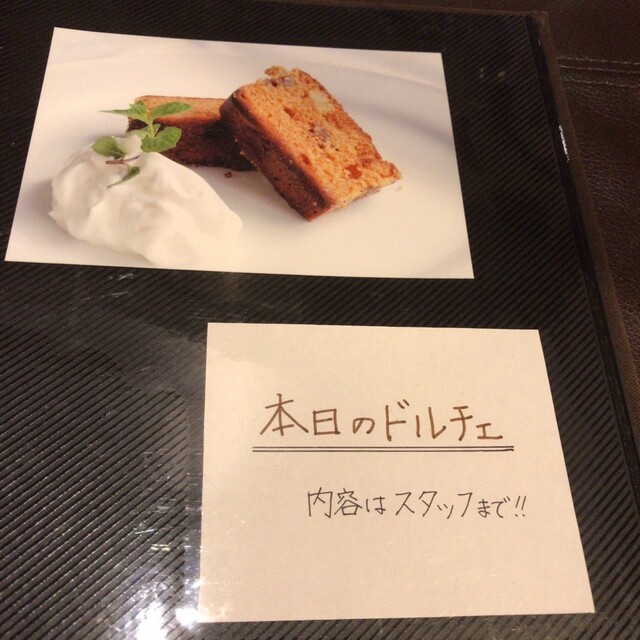 本日のドルチェ
内容はスタッフまで!!